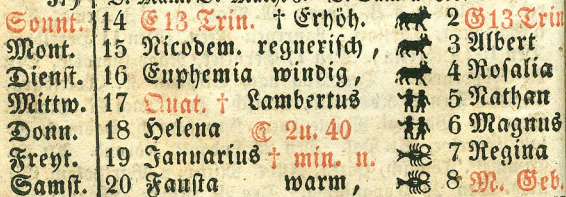 Sonnt. 14 E 13 Trin. † Erhöh. 2 G 13 Trin
Mont. 15 Nicodem. regnerisch, 3 Albert
Dienst. 16 Euphemia windig, 4 Rosalia
Mittw. 17 Quat. † Lambertus 5 Nathan
Donn. 18 Helena ☾ 2 u. 40 6 Magnus
Freyt. 19 Januarius † min. n. 7 Regina
Samst. 20 Fausta warm, 8 M. Geb.